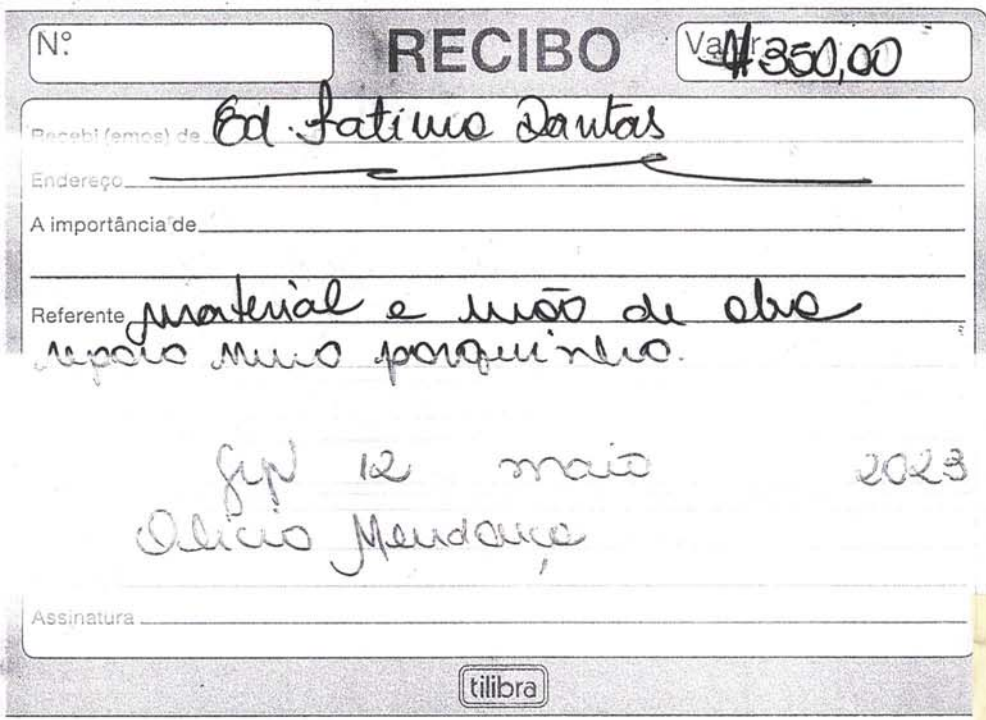 Nº RECIBO Valor #350,00
Recebi (emos) de Ed. Fatima Dantas
Endereço
A importância de
Referente material e mão de obra
reparo muro porquinho.
12 maio 2023
Mendonça
Assinatura
tilibra